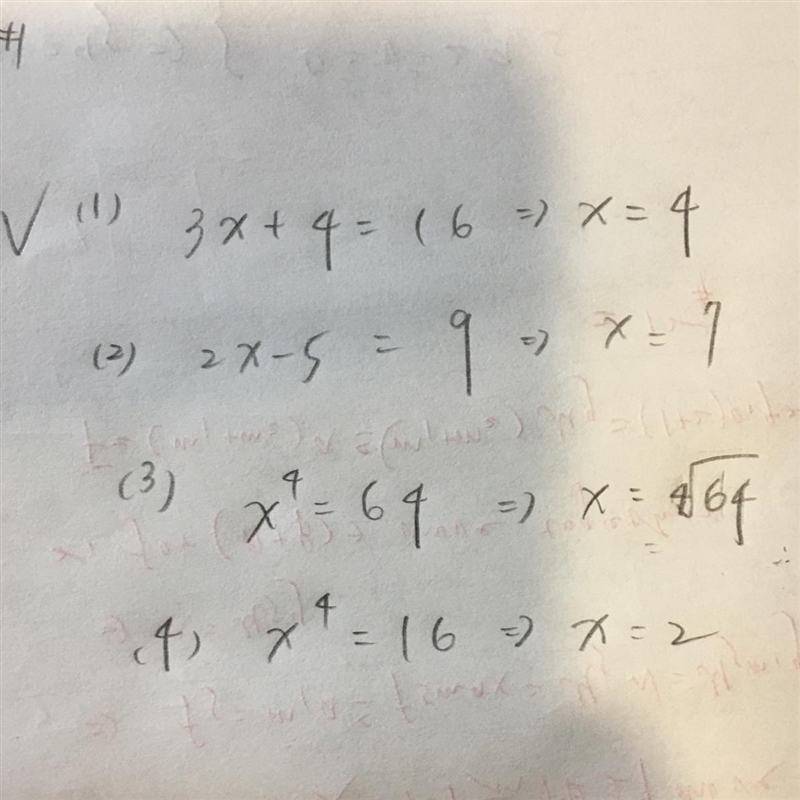 #1
√ (1) 3x + 4 = 16 ⇒ x = 4
(2) 2x - 5 = 9 ⇒ x = 7
(3) x⁴ = 64 ⇒ x = ∜64
(4) x⁴ = 16 ⇒ x = 2